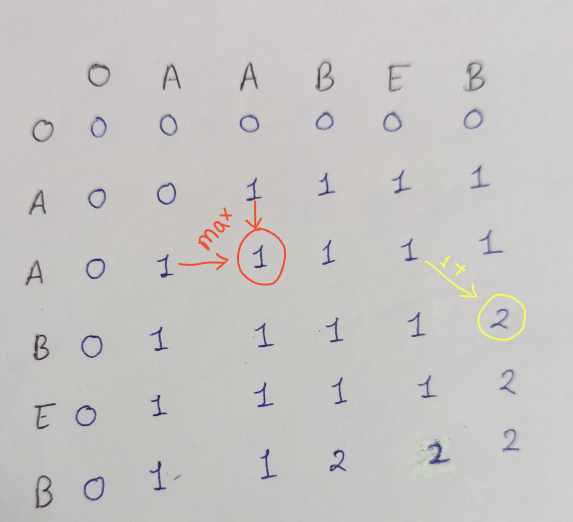 O A A B E B
O 0 0 0 0 0 0
A 0 0 1 1 1 1
max
A 0 1 1 1 1 1
1+
B 0 1 1 1 1 2
E 0 1 1 1 1 2
B 0 1 1 2 2 2